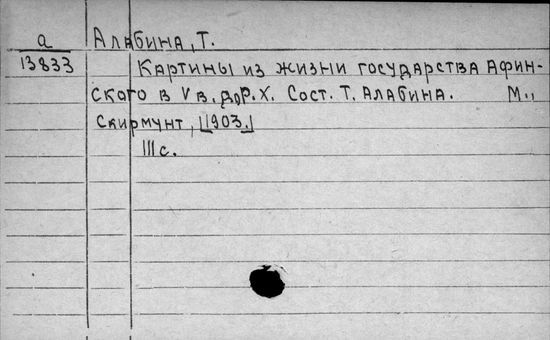 а
13833
Алабина, Т.
Картины из жизни государства Афин-
ского в V в. до Р. Х. Сост. Т. Алабина. М.,
Скирмунт, [1903.]
111 с.